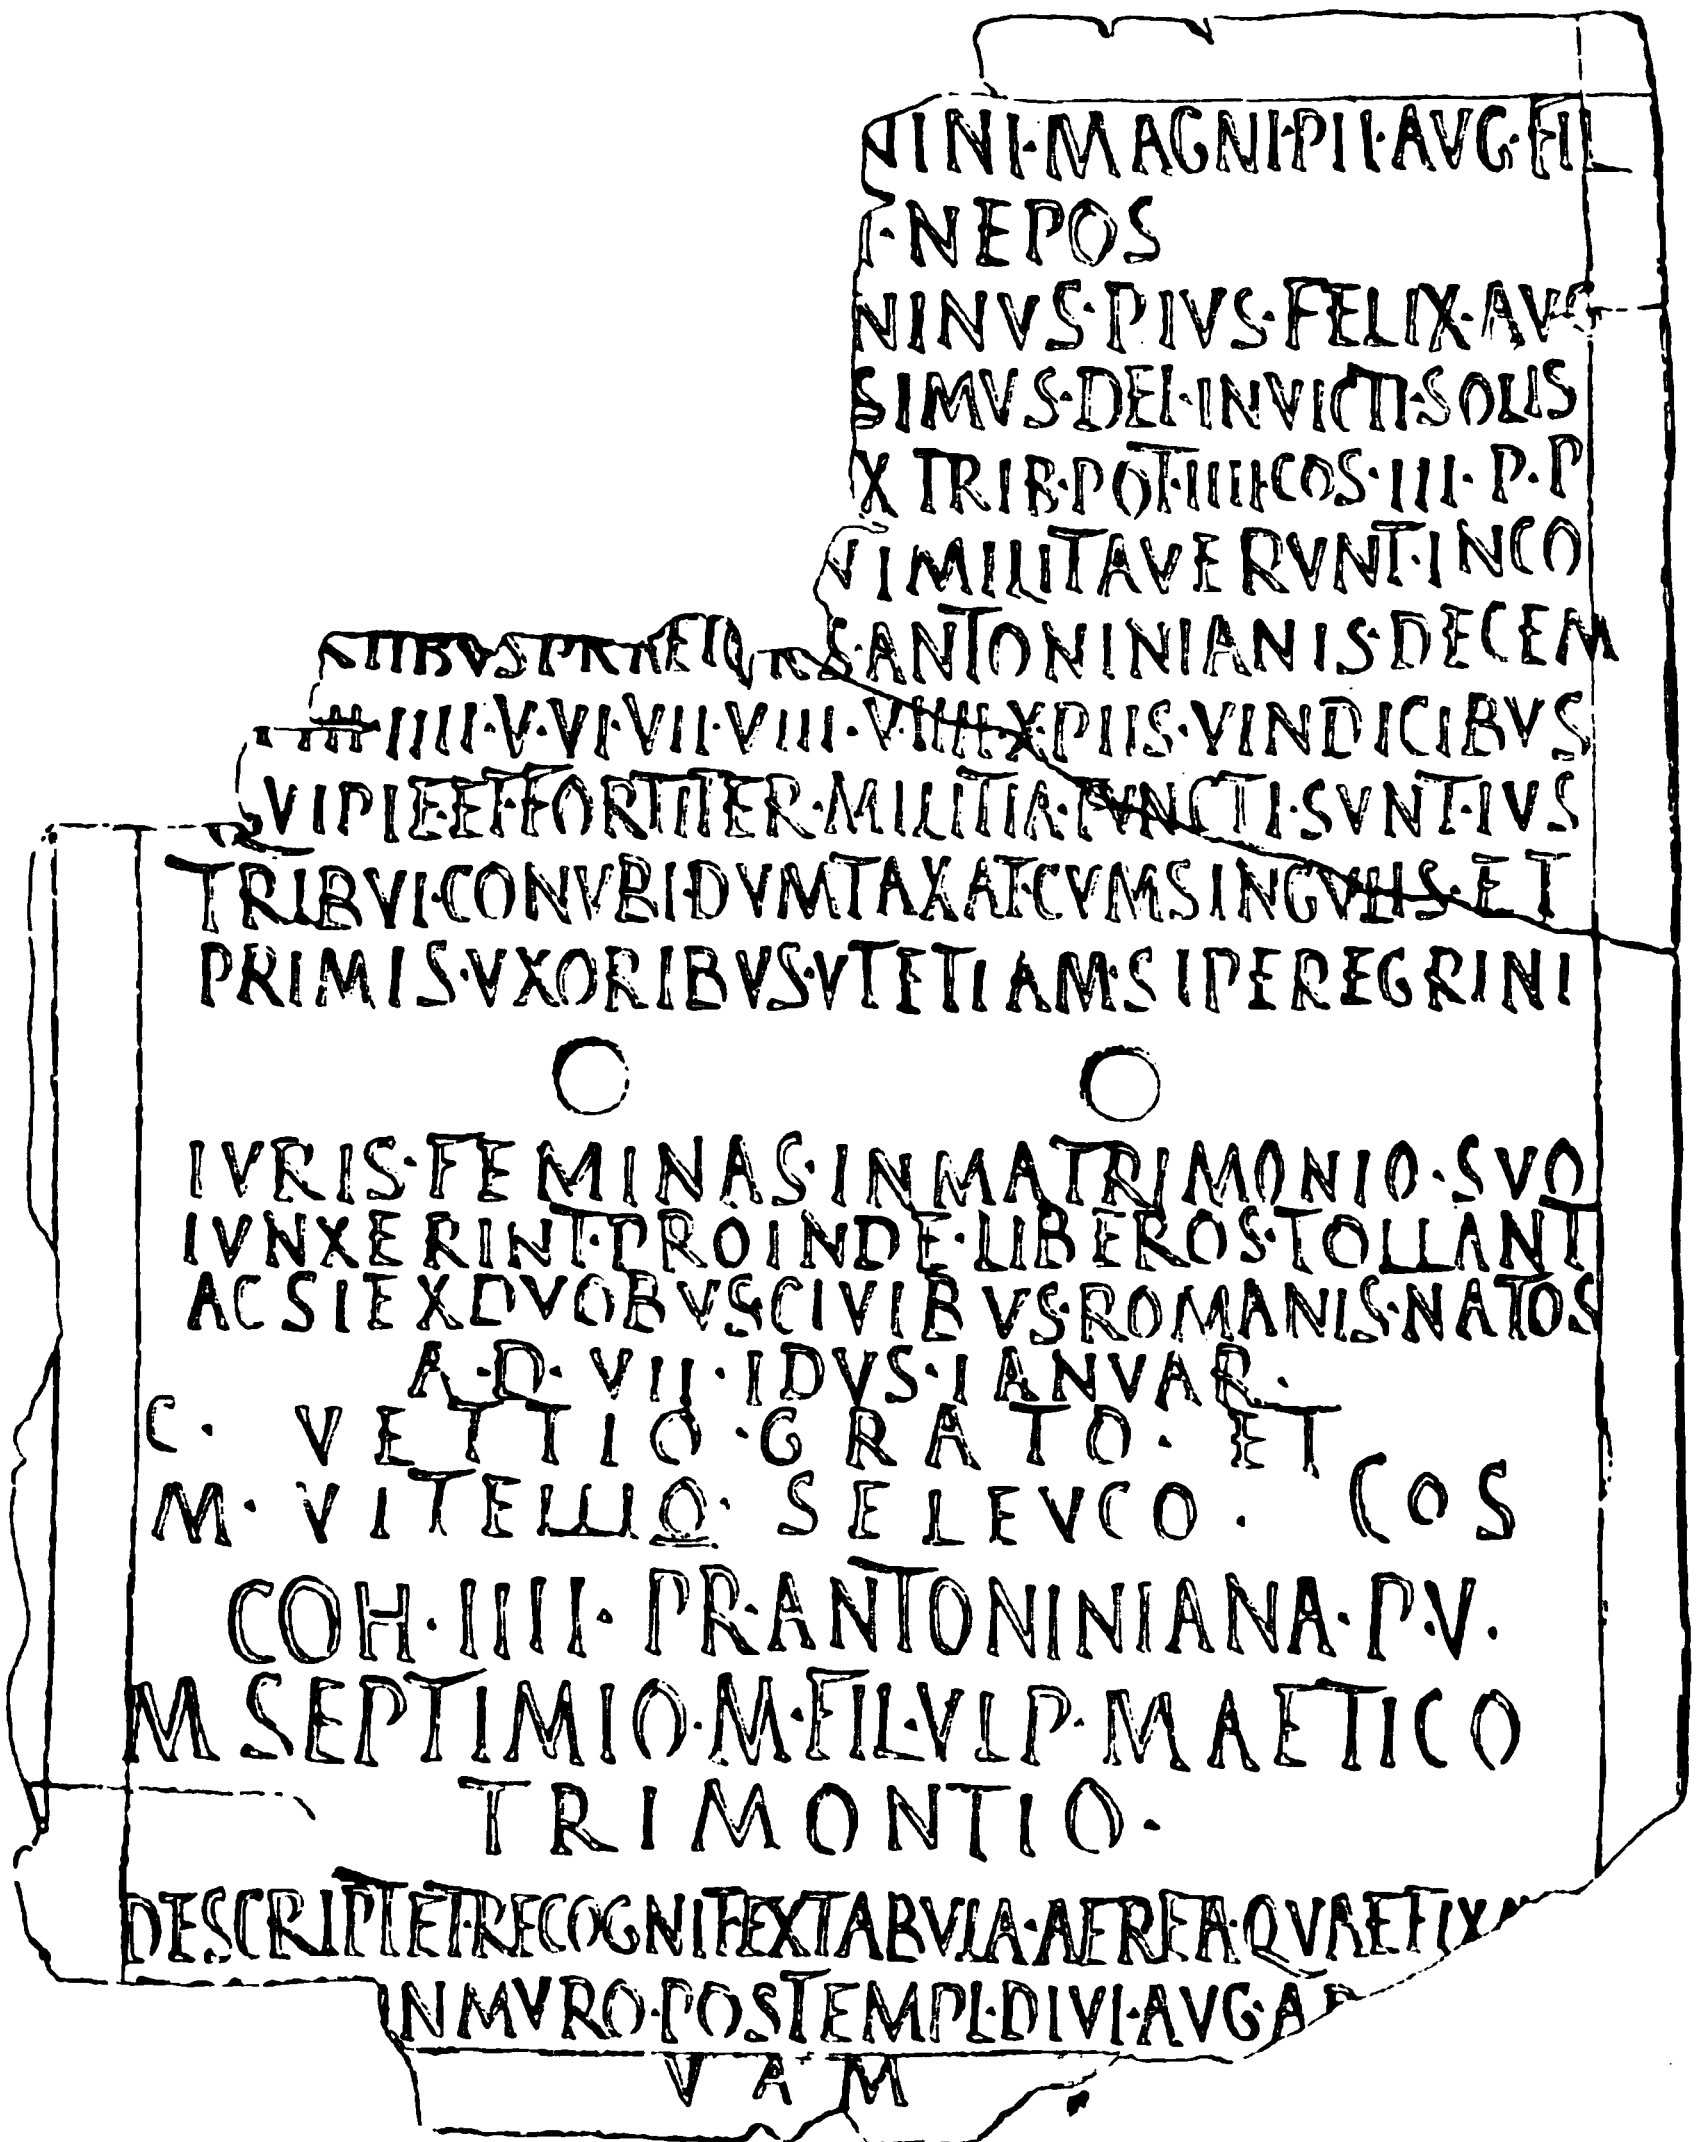 NINI·MAGNI·PII·AVG·FIL
·NEPOS
NINVS·PIVS·FELIX·AVG
SIMVS·DEI·INVICTI·SOLIS
X TRIB·POT·IIII·COS·III·P·P
VI MILITAVERVNT·IN CO
S·ANTONINIANIS·DECEM
III·IIII·V·VI·VII·VIII·VIIII·X·PIIS·VINDICIBVS
QVI PIE·ET·FORTITER·MILITIA·FVNCTI·SVNT·IVS
TRIBVI·CONVBI·DVMTAXAT·CVM SINGVLIS·ET
PRIMIS·VXORIBVS·VT ETIAM·SI PEREGRINI
IVRIS·FEMINAS·IN MATRIMONIO·SVO
IVNXERINT·PROINDE·LIBEROS·TOLLANT
AC SI EX DVOBVS·CIVIBVS·ROMANIS·NATOS
A·D·VII·IDVS·IANVAR·
C· VETTIO·GRATO· ET
M· VITELLIO· SELEVCO· COS
COH·IIII·PR·ANTONINIANA·P·V·
M SEPTIMIO·M·FIL·VLP·MAETICO
TRIMONTIO·
DESCRIPT ET·RECOGNIT·EX TABVLA·AEREA·QVAE FIXA
IN MVRO·POS TEMPL·DIVI·AVG·A
V A M